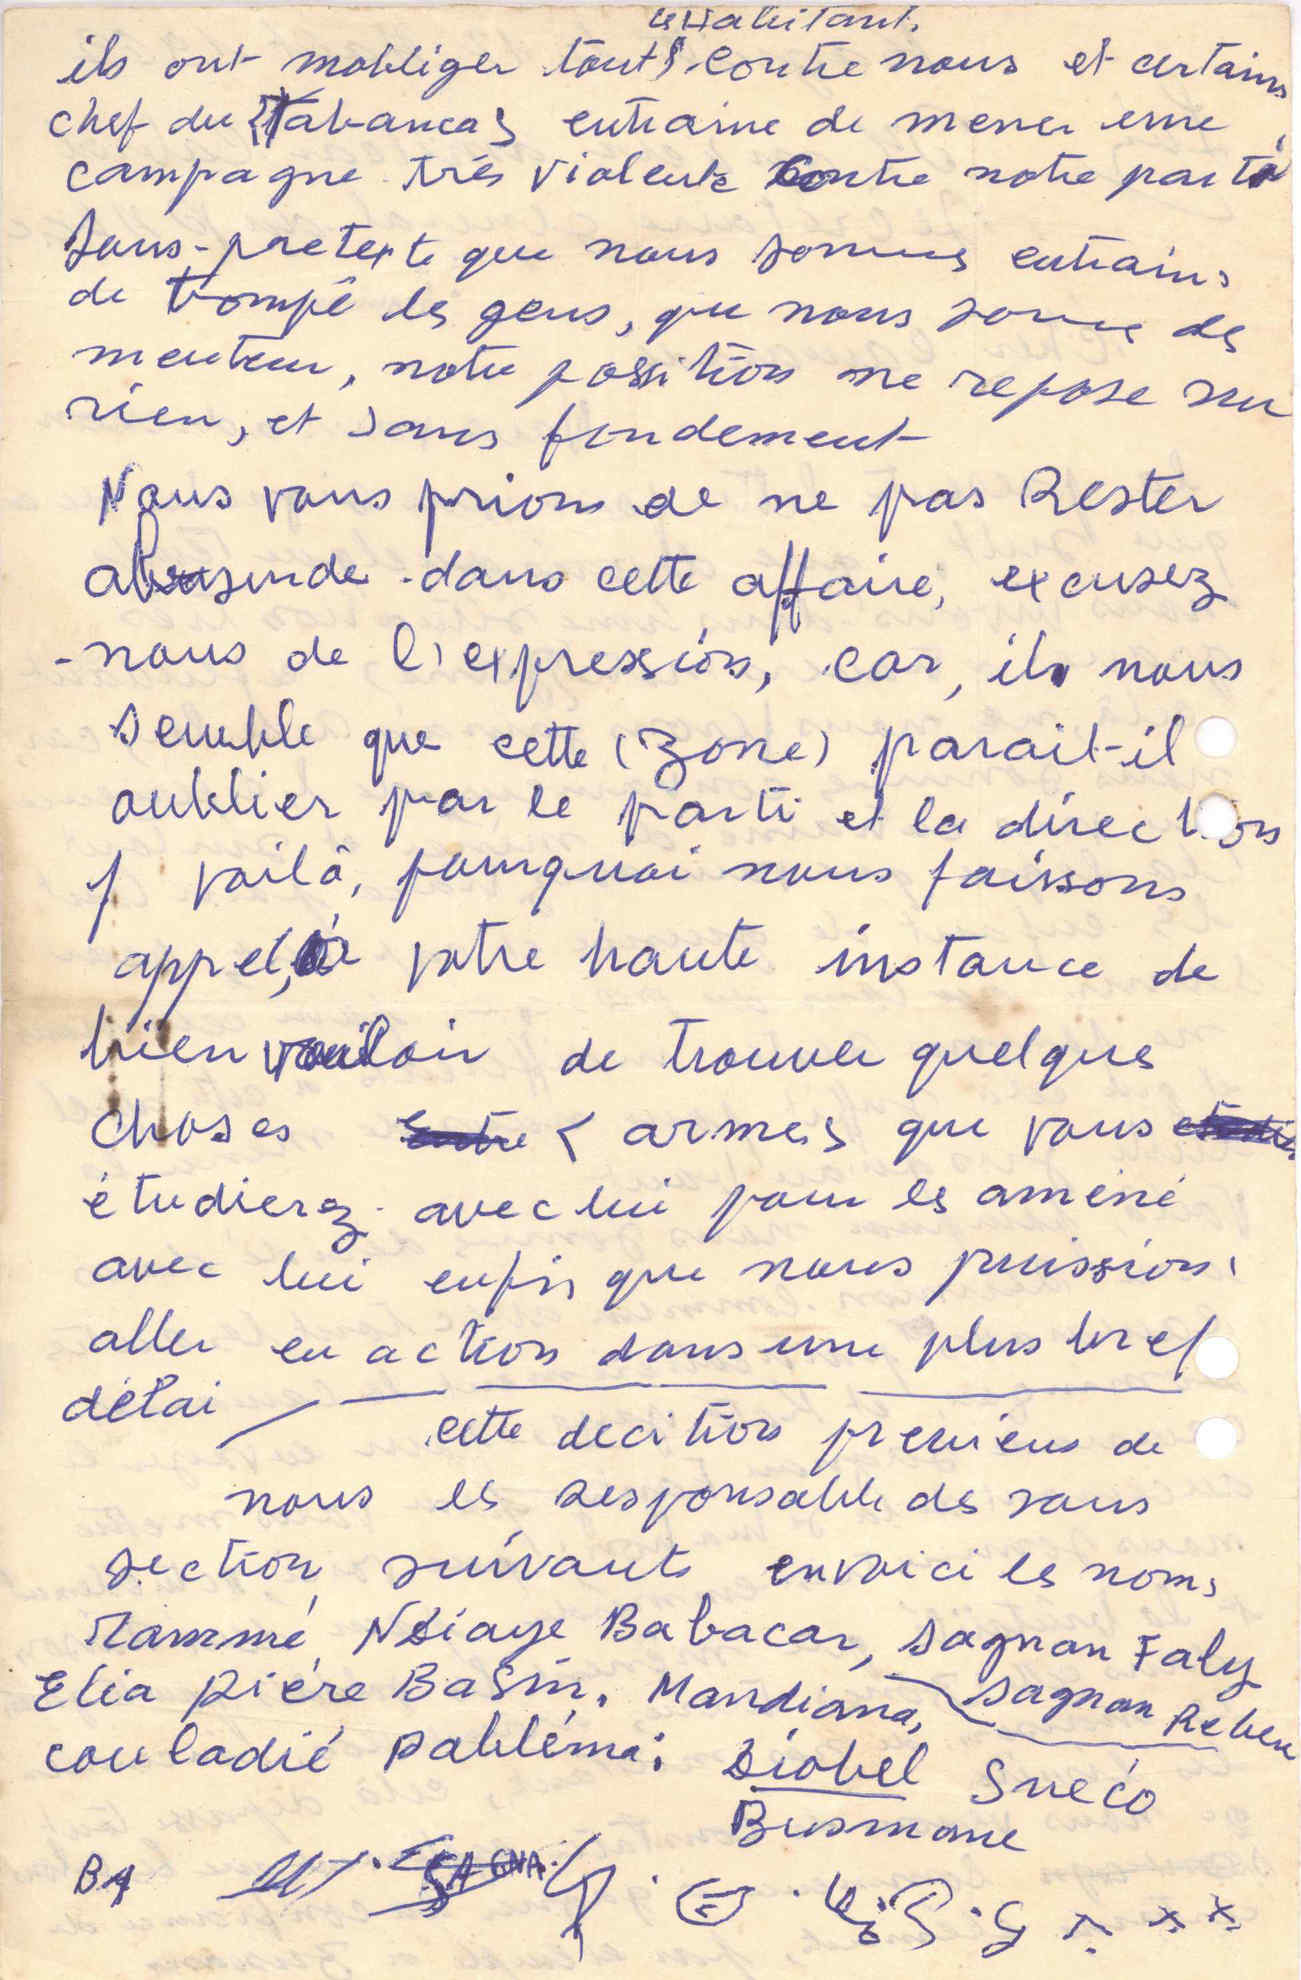 habitant.
ils ont mobliger touts contre nous et certains
chef du Tabancas entraine de mener une
campagne très violente contre notre parti
Sous-pretexte que nous sommes entrains
de trompé les gens, que nous somme des
menteur, notre possition ne repose sur
rien, et sans fondement
Nous vous prions de ne pas Rester
dans cette affaire, excusez
-nous de l'expression, car, il nous
semble que cette (Zone) parait-il
oublier par le parti et la direction
voilà, pourquoi nous faissons
appel, à votre haute instance de
bien vouloir de trouver quelques
choses < armes que vous
étudierez avec lui pour les améné
avec lui enfin que nous puission
aller en action dans une plus bref
délai
cette decition preniens de
nous les Responsable des sous
section suivants envoici les noms
Mammé, Ndiaye Babacar, Sagnan Faly
Elia Pière BaSin, Mandiana, Sagnan Reben
couladié Pabléma; Diobel Sneco
Busmane
BA SAGNA